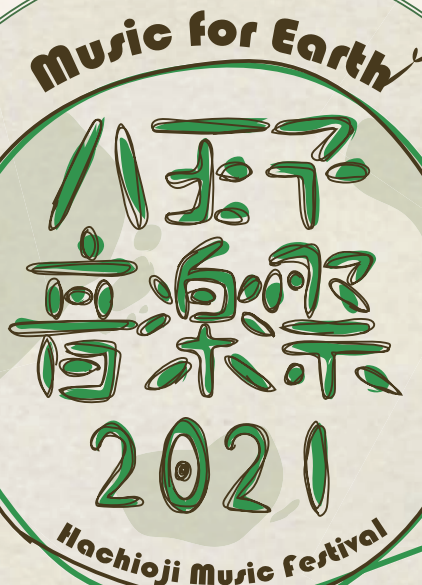 Music for Earth
八王子
音楽祭
2021
Hachioji Music Festival